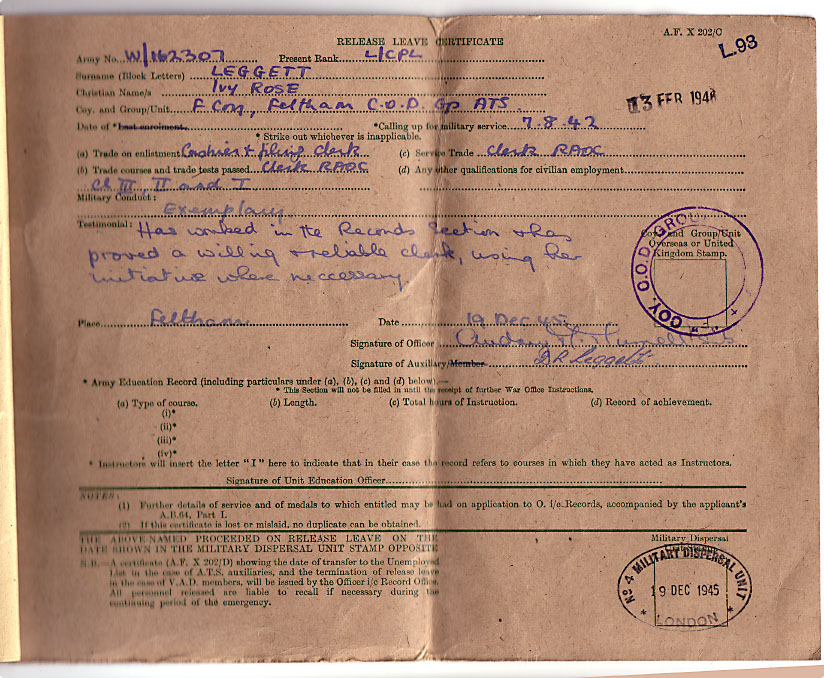 A.F. X 202/C
RELEASE LEAVE CERTIFICATE
L.93
Army No. W/162307 Present Rank L/CPL
Surname (Block Letters) LEGGETT
Christian Name/s IVY ROSE
Coy. and Group/Unit F Coy, Feltham C.O.D. Gp ATS
13 FEB 1946
Date of *Last enrolment. *Calling up for military service 7.8.42
* Strike out whichever is inapplicable.
(a) Trade on enlistment Cashier & filing clerk (c) Service Trade Clerk RAOC
(b) Trade courses and trade tests passed Clerk RAOC (d) Any other qualifications for civilian employment
Cl III, II and I
Military Conduct: Exemplary
Testimonial: Has worked in the Records Section & has
proved a willing & reliable clerk, using her
initiative where neccessary.
Coy. and Group/Unit
Overseas or United
Kingdom Stamp.
COY. C.O.D. GROUP
Place Feltham Date 19 Dec 45
Signature of Officer
Signature of Auxiliary/Member I.R. Leggett
* Army Education Record (including particulars under (a), (b), (c) and (d) below).—
* This Section will not be filled in until the receipt of further War Office Instructions.
(a) Type of course. (b) Length. (c) Total hours of Instruction. (d) Record of achievement.
(i)*
(ii)*
(iii)*
(iv)*
* Instructors will insert the letter "I" here to indicate that in their case the record refers to courses in which they have acted as Instructors.
Signature of Unit Education Officer
NOTES:
(1) Further details of service and of medals to which entitled may be had on application to O. i/c Records, accompanied by the applicant's
A.B.64, Part I.
(2) If this certificate is lost or mislaid, no duplicate can be obtained.
THE ABOVE-NAMED PROCEEDED ON RELEASE LEAVE ON THE
DATE SHOWN IN THE MILITARY DISPERSAL UNIT STAMP OPPOSITE
N.B.—A certificate (A.F. X 202/D) showing the date of transfer to the Unemployed
List in the case of A.T.S. auxiliaries, and the termination of release leave
in the case of V.A.D. members, will be issued by the Officer i/c Record Office.
All personnel released are liable to recall if necessary during the
continuing period of the emergency.
Military Dispersal
No 4 MILITARY DISPERSAL UNIT
19 DEC 1945
* LONDON *